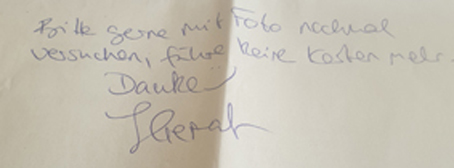 Bitte gerne mit Foto nochmal
versuchen, keine Kosten mehr.
Danke